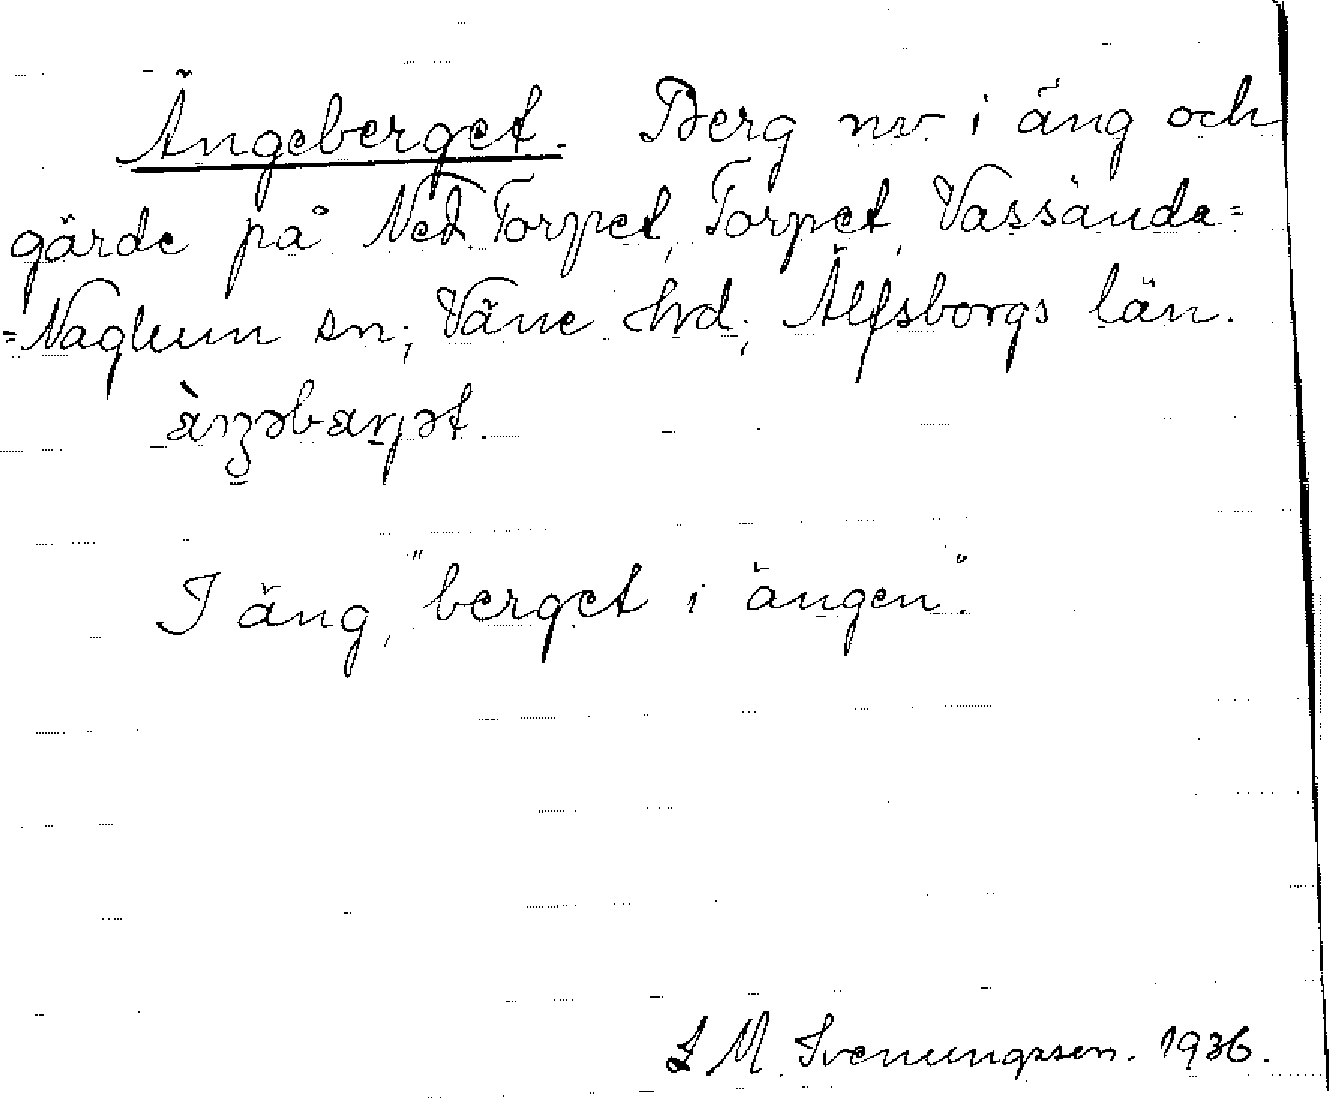 Ängeberget. Berg nv. i äng och
gärde på Ned. Torpet, Torpet, Vassända=
=Naglum sn; Väne hd; Älfsborgs län.
I äng, "berget i ängen".
I M. Svenungsson. 1936.